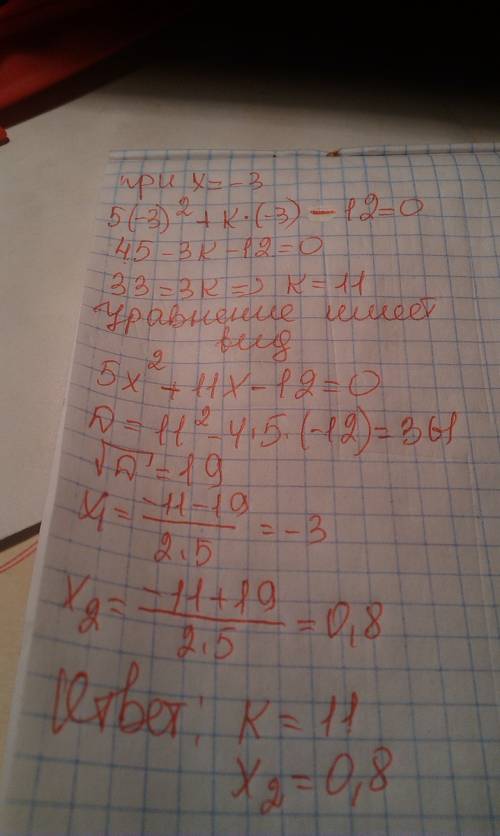 при x = -3
5(-3)² + к·(-3) - 12 = 0
45 - 3к - 12 = 0
33 = 3к => к = 11
Уравнение имеет
вид
5x² + 11x - 12 = 0
D = 11² - 4·5·(-12) = 361
√D = 19
x₁ = (-11-19)/(2·5) = -3
x₂ = (-11+19)/(2·5) = 0,8
Ответ: к = 11
x₂ = 0,8